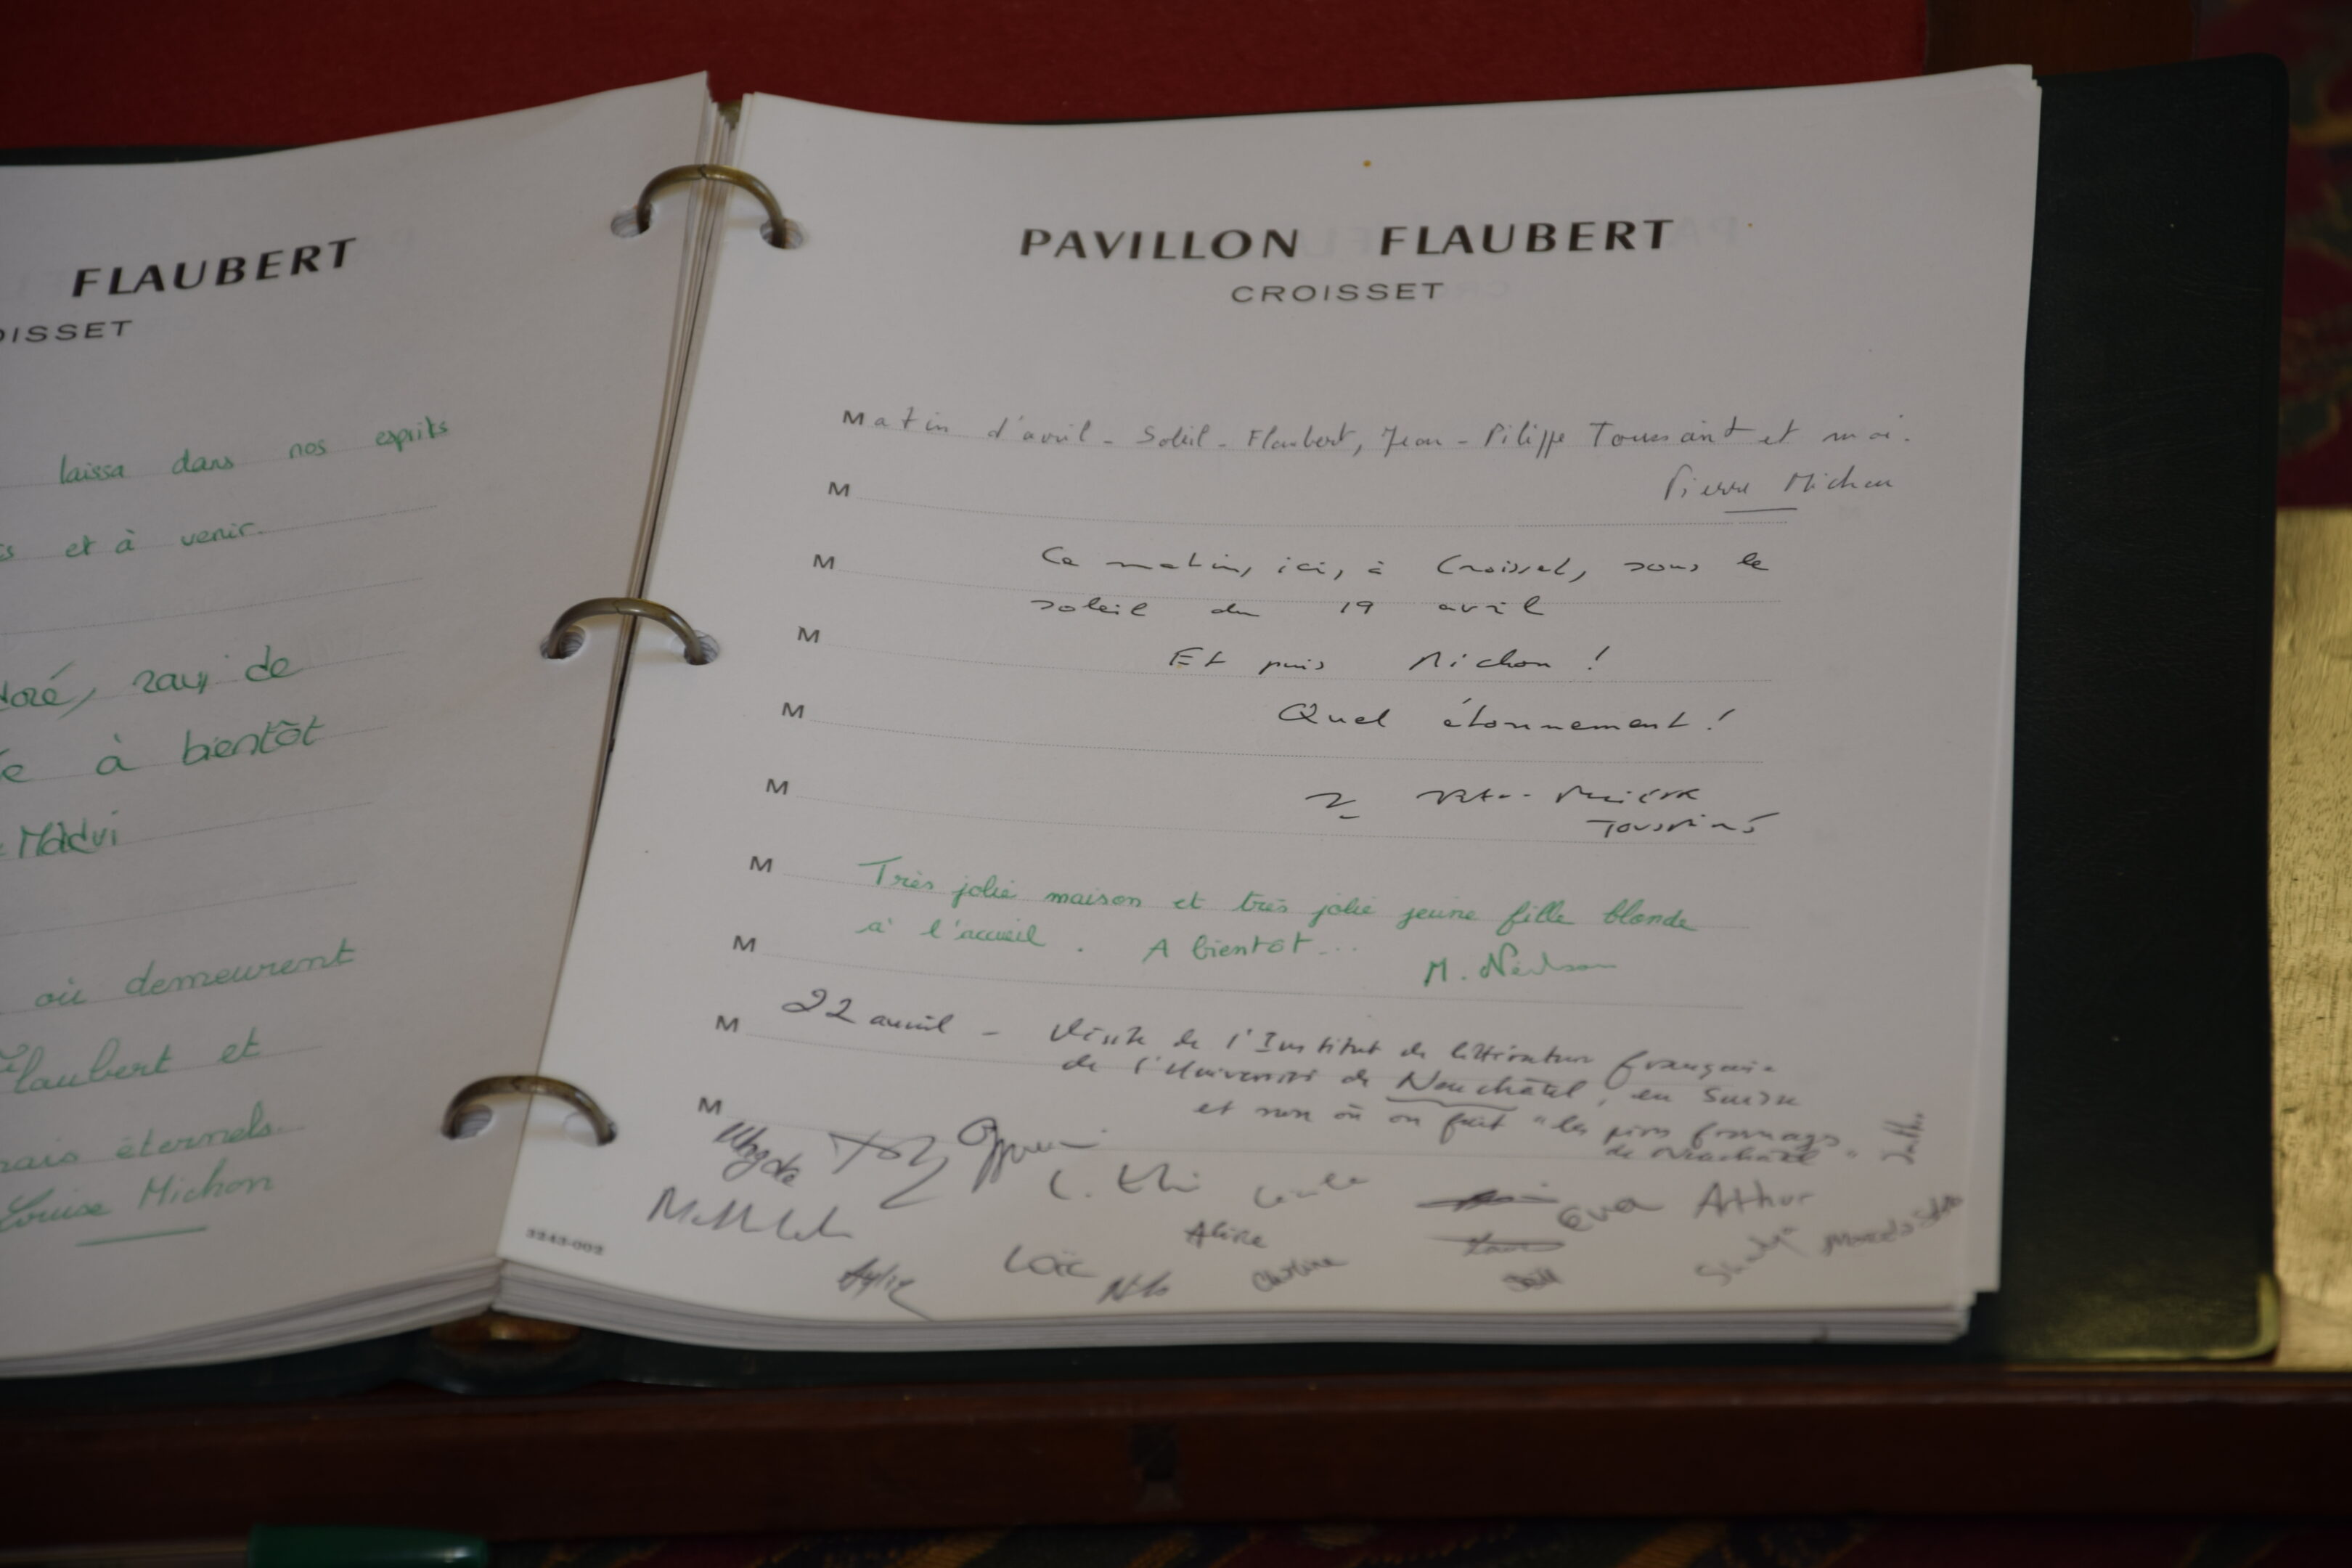 FLAUBERT
OISSET
laissa dans nos esprits
et à venir.
doré, ravi de
à bientôt
Madvi
où demeurent
Flaubert et
éternels.
Louise Michon
PAVILLON FLAUBERT
CROISSET
Matin d'avril - Soleil - Flaubert, Jean-Pilippe Toussaint et moi.
M
Pierre Michon
M
Ce matin, ici, à Croisset, sous le
soleil du 19 avril
M
Et puis Michon !
M
Quel étonnement !
M
Toussaint
M
Très jolie maison et très jolie jeune fille blonde
à l'accueil. A bientôt...
M
M.
M
22 avril - Visite de l'Institut de littérature française
de l'Université de Neuchâtel, en Suisse
M
et non où on fait "les fromages
de Neuchâtel"
Magda
Eva
Arthur
Aline
Loïc
3243-002